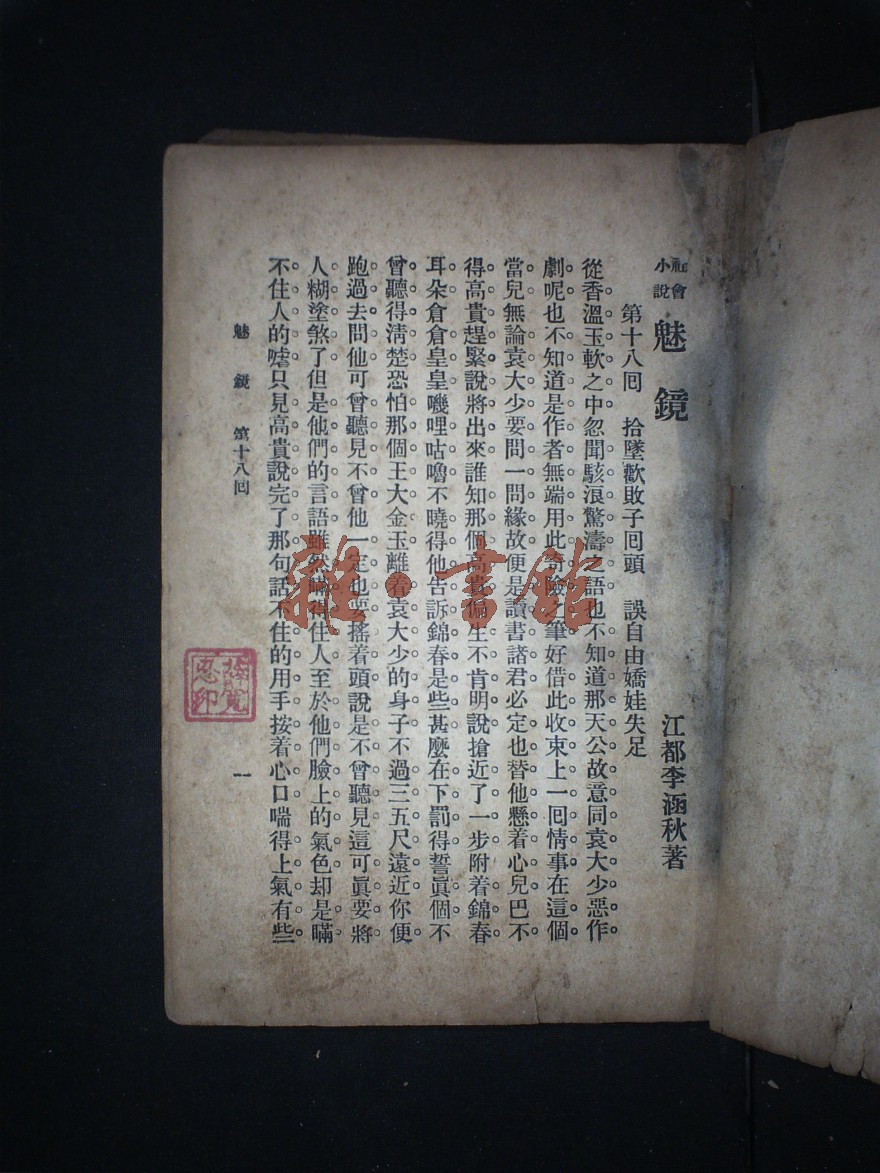 社會小說 魅鏡 江都李涵秋著
第十八囘 拾墜歡敗子囘頭 誤自由嬌娃失足
從香溫玉軟之中忽聞駭浪驚濤之語也不知道那天公故意同袁大少惡作
劇呢也不知道是作者無端用此奇險之筆好借此收束上一囘情事在這個
當兒無論袁大少要問一問緣故便是讀書諸君必定也替他懸着心兒巴不
得高貴趕緊說將出來誰知那個高貴偏生不肯明說搶近了一步附着錦春
耳朵倉倉皇皇嘰哩咕嚕不曉得他告訴錦春是些甚麼在下罰得誓眞個不
曾聽得淸楚恐怕那個王大金玉離着袁大少的身子不過三五尺遠近你便
跑過去問他可曾聽見不曾他一定也要搖着頭說是不曾聽見這可眞要將
人糊塗煞了但是他們的言語雖然瞞得住人至於他們臉上的氣色却是瞞
不住人的只見高貴說完了那句話不住的用手按着心口喘得上氣有些
魅鏡 第十八囘 一
雜·書館